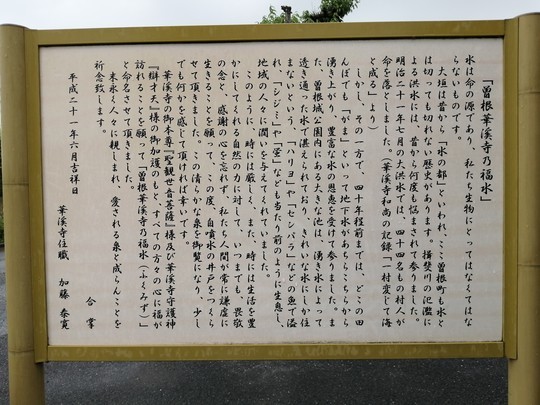 「曽根華渓寺乃福水」
水は命の源であり、私たち生物にとってはなくてはな
らないものです。
大垣は昔から「水の都」といわれ、ここ曽根町も水と
は切っても切れない歴史があります。揖斐川の氾濫に
よる洪水には、昔から何度も悩まされて参りました。
明治二十一年七月の大洪水では、四十四名もの村人が
命を落としました。（華渓寺和尚の記録「一村変じて海
と成る」より）
しかし、その一方で、四十年程前までは、どこの田
んぼでも「がま」といって地下水があちらこちらから
湧き上がり、豊富な水の恩恵を受けて参りました。ま
た、曽根城公園内にある大きな池は、湧き水によって
透き通った水で湛えられており、きれいな水にしか住
まないという、「ハリヨ」や「センパラ」などの魚で溢
れ、「シジミ」や「蛍」なども当たり前のように生息し、
地域の人々に潤いを与えてくれていました。
このように、時には厳しく、また、時には生活を豊
かにしてくれる自然の力に対して、いつまでも畏敬
の念と、感謝の心を忘れず、私たち人間が常に謙虚に
生きることを願って、この度、自噴水の井戸をつくら
せて頂きました。この清らかな泉を御覧になり、少し
でも何かを感じて頂ければ幸いです。
華渓寺の御本尊『聖観世音菩薩』様及び華渓寺守護神
『辯才天』様の御加護のもと、すべての方々の心に福が
訪れることを願って「曽根華渓寺乃福水（ふくみず）」
と命名させて頂きました。
末永く人々に親しまれ、愛される泉と成らんことを
祈念致します。
合掌
平成二十一年六月吉祥日
華渓寺住職 加藤泰寛